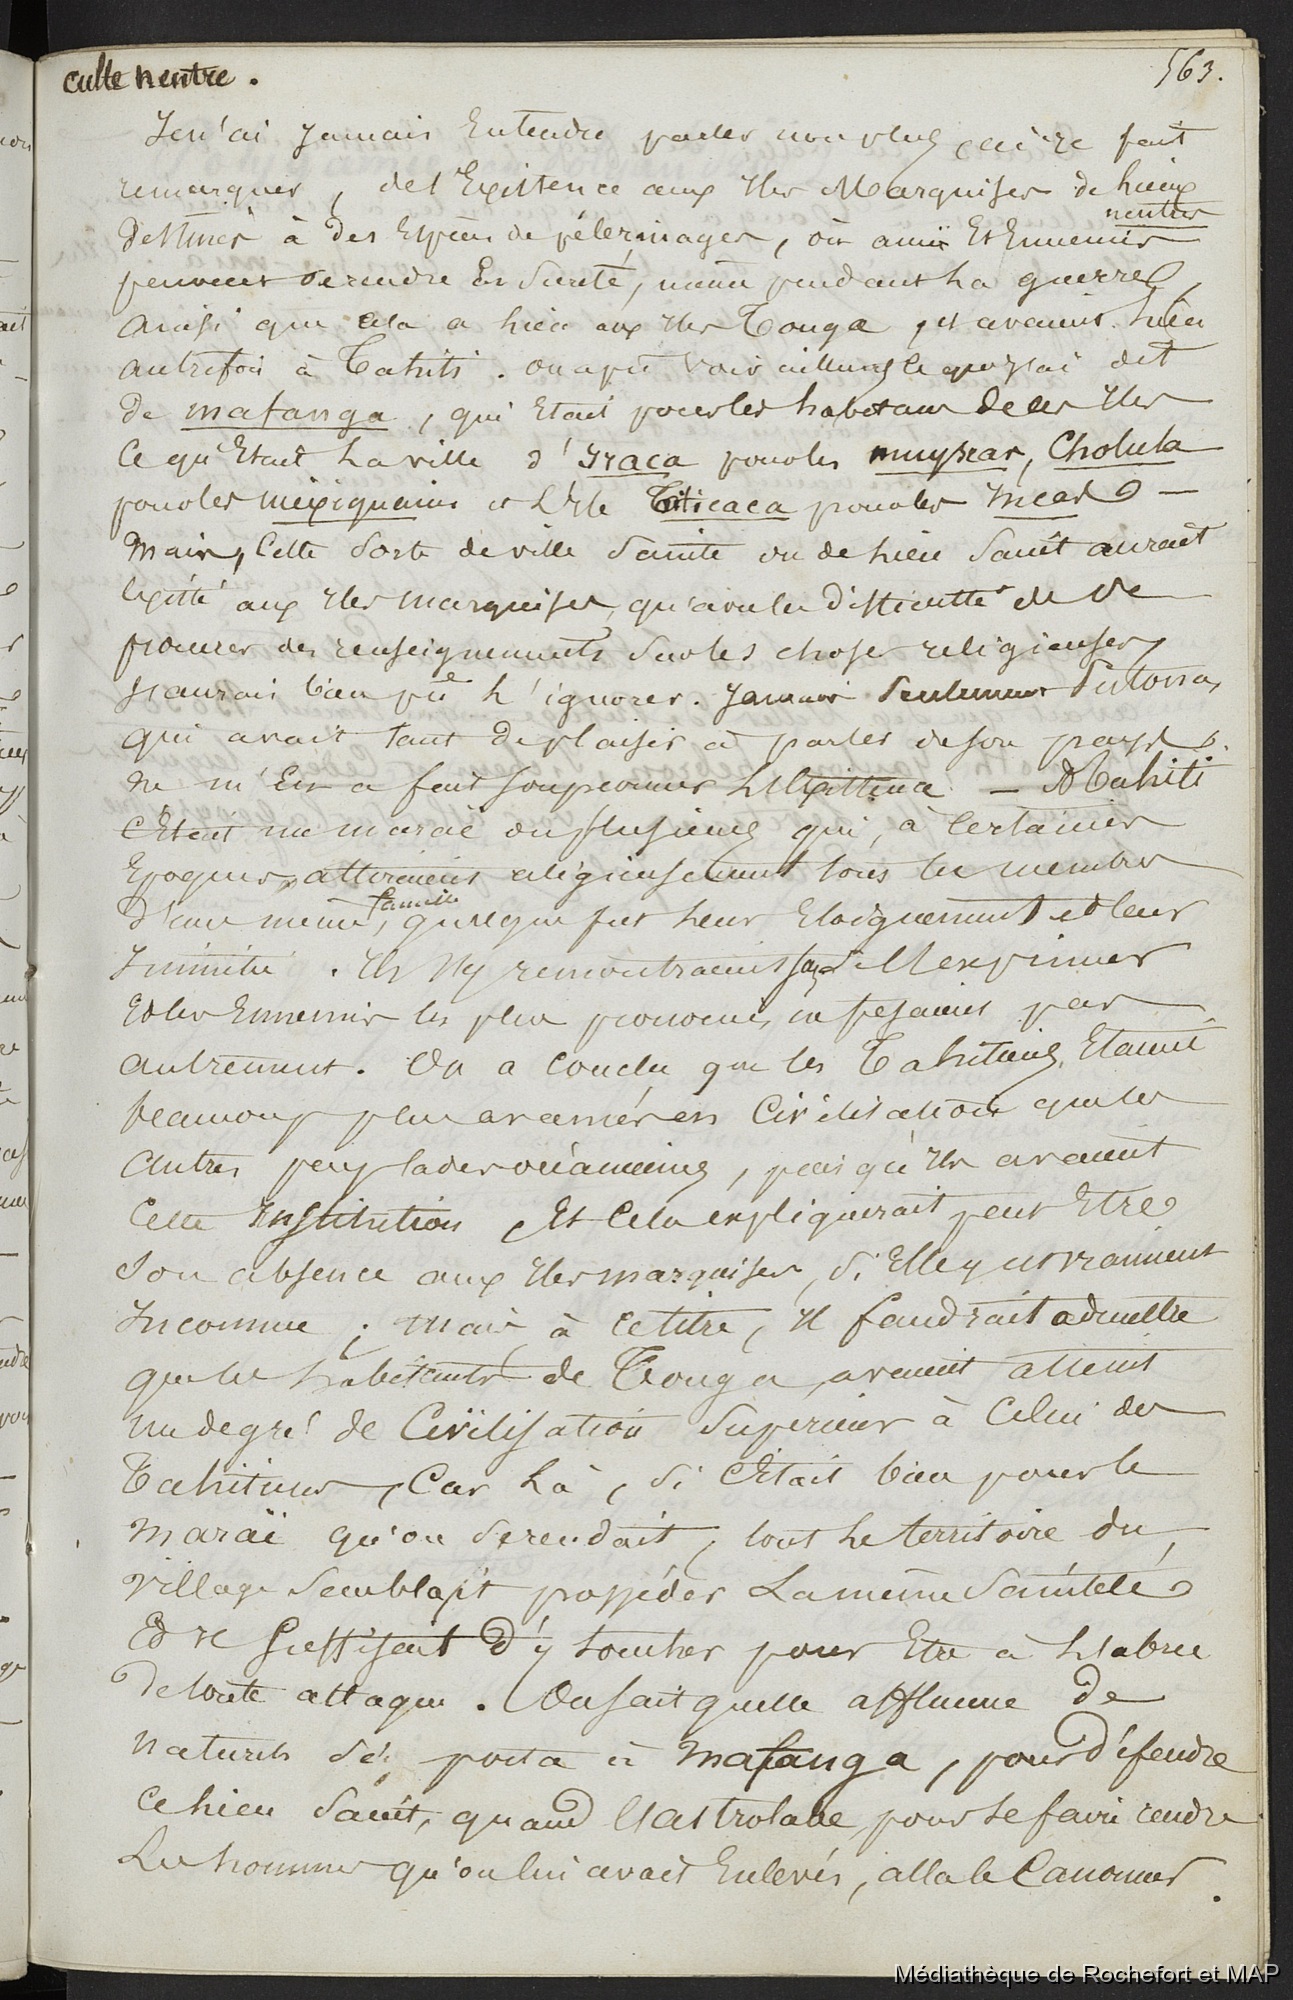 culte neutre.
563.
Je n'ai jamais entendre parler non plus, ai-je fait
remarquer, de l'Existence aux Iles Marquises de lieux
neutres
destinés à des Espèces de pélerinages, où amis Et Ennemis
peuvent se rendre En Sureté, même pendant la guerre,
ainsi que cela a lieu aux Iles Tonga, et avaient lieu
autrefois à Tahiti. on a pu voir ailleurs ce que j'ai dit
de mafanga, qui Etait pour les habitans de ces Iles
Ce qu'Etait la ville d'Iraca pour les muyscas, Cholula
pour les mexiquains et L'Ile Titicaca pour les Incas —
Mais, Cette Sorte de ville Sainte ou de lieu Saint aurait
Existé aux Iles marquises, qu'avec la difficulté de se
procurer des renseignements Sur les choses religieuses,
j'aurais bien pu l'ignorer. Jamais Seulement
qui avait tant de plaisir à parler de son pays
ne m'En a fait Soupconner l'Existence — A Tahiti
c'Etait un maraë ou plusieurs qui, à Certaines
Epoques, attiraient religieusement tous les membres
famille
d'une même, quelque fut leur Eloignement et leur
Inimitié. Ils s'y rencontraient sans s'y exprimer
Et les Ennemis les plus prononcés, n'en fesaient pas
autrement. On a conclu que les Tahitiens, Etaient
beaucoup plus avancés en Civilisation que les
Autres peuplades océaniennes, puis qu'Ils avaient
Cette Institution, Et Cela expliquerait peut Etre
Son absence aux Iles marquises, Si Elle y est vraiment
Inconnue; mais à ce titre, Il faudrait admettre
que les habitants de Tonga avaient atteint
un degré de Civilisation Superieur à Celui des
Tahitiens, Car là, Si C'Etait bien pour le
maraï qu'on Se rendait, tout le territoire du
Village Semblait posséder La même Sainteté
Et Il Suffisait d'y toucher pour Etre à l'abri
de toute attaque. On sait quelle affluence de
naturels Se porta à Mafanga, pour défendre
Ce lieu Saint, quand l'astrolabe, pour se faire rendre
Les hommes qu'on lui avait Enlevés, alla le Canonner.
Médiathèque de Rochefort et MAP